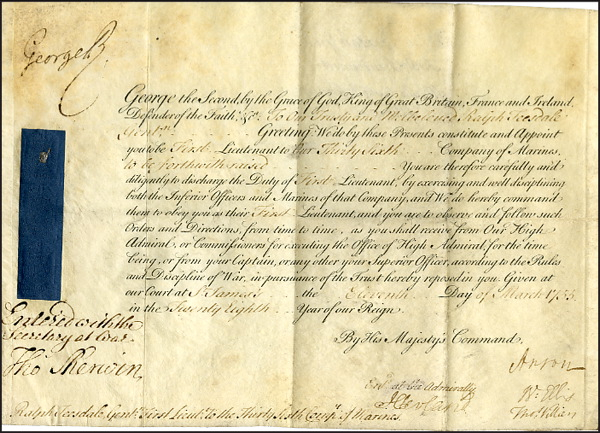 George R.
George the Second, by the Grace of God, King of Great Britain, France and Ireland,
Defender of the Faith, &c. To Our Trusty and Welbeloved Ralph Teesdale
Gentn. Greeting We do by these Presents constitute and Appoint
you to be First Lieutenant to Our Thirty Sixth Company of Marines,
to be forthwith raised You are therefore carefully and
diligently to discharge the Duty of First Lieutenant, by exercising and well disciplining
both the Inferior Officers and Marines of that Company, and We do hereby command
them to obey you as their First Lieutenant, and you are to observe and follow such
Orders and Directions, from time to time, as you shall receive from Our High
Admiral, or Commissioners for executing the Office of High Admiral, for the time
being, or from your Captain, or any other your Superior Officer, according to the Rules
and Discipline of War, in pursuance of the Trust hereby reposed in you. Given at
our Court at St. James's the Eleventh Day of March 1755.
in the Twenty Eighth Year of our Reign.
Entered with the
Secretary at War.
Tho Sherwin.
By His Majesty's Command,
Anson
Wm. Ellis
Thos. Villiers
Entd. at the Admiralty
J Clevland
Ralph Teesdale, Gentn. First Lieut. to the Thirty Sixth Compy. of Marines.